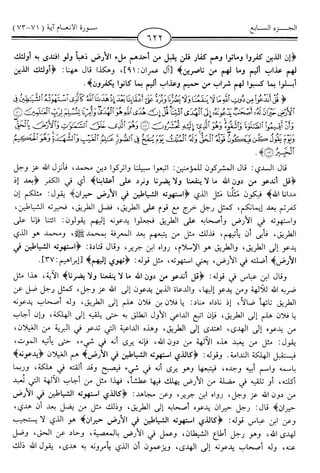 الجـزء السـابع
٦٢٢
سورة الانعـام آية ( ٧١-٧٣)
﴿إن الذين كفروا وماتوا وهم كفار فلن يقبل من أحدهم ملء الأرض ذهباً ولو افتدى به أولئك
لهم عذاب أليم وما لهم من ناصرين﴾ [آل عمران: ٩١]، وهكذا قال ههنا: ﴿أولئك الذين
أبسلوا بما كسبوا لهم شراب من حميم وعذاب أليم بما كانوا يكفرون﴾.
قال السدي: قال المشركون للمؤمنين: اتبعوا سبيلنا واتركوا دين محمد، فأنزل الله عز وجل
﴿قل أندعو من دون الله ما لا ينفعنا ولا يضرنا ونرد على أعقابنا﴾ أي في الكفر ﴿بعد إذ
هدانا الله﴾ فيكون مثلنا مثل الذي ﴿استهوته الشياطين في الأرض حيران﴾ يقول: مثلكم إن
كفرتم بعد إيمانكم، كمثل رجل خرج مع قوم على الطريق، فضل الطريق، فحيرته الشياطين،
واستهوته في الأرض وأصحابه على الطريق فجعلوا يدعونه إليهم يقولون: ائتنا فإنا على
الطريق، فأبى أن يأتيهم، فذلك مثل من يتبعهم بعد المعرفة بمحمد ﷺ، ومحمد هو الذي
يدعو إلى الطريق، والطريق هو الإسلام، رواه ابن جرير، وقال قتادة: ﴿استهوته الشياطين في
الأرض﴾ أضلته في الأرض، يعني استهوته، مثل قوله: ﴿تهوي إليهم﴾ [إبراهيم: ٣٧].
وقال ابن عباس في قوله: ﴿قل أندعو من دون الله ما لا ينفعنا ولا يضرنا﴾ الآية، هذا مثل
ضربه الله للآلهة ومن يدعو إليها، والدعاة الذين يدعون إلى الله عز وجل، كمثل رجل ضل عن
الطريق تائهاً ضالاً، إذ ناداه مناد: يا فلان بن فلان هلم إلى الطريق، وله أصحاب يدعونه
يا فلان هلم إلى الطريق، فإن اتبع الداعي الأول انطلق به حتى يلقيه إلى الهلكة، وإن أجاب
من يدعوه إلى الهدى، اهتدى إلى الطريق، وهذه الداعية التي تدعو في البرية من الغيلان،
يقول: مثل من يعبد هذه الآلهة من دون الله، فإنه يرى أنه في شيء، حتى يأتيه الموت،
فيستقبل الهلكة الندامة. وقوله: ﴿كالذي استهوته الشياطين في الأرض﴾ هم الغيلان ﴿يدعونه﴾
باسمه واسم أبيه وجده، فيتبعها وهو يرى أنه في شيء فيصبح وقد ألقته في هلكة، وربما
أكلته، أو تلقيه في مضلة من الأرض يهلك فيها عطشاً، فهذا مثل من أجاب الآلهة التي تُعبد
من دون الله عز وجل، رواه ابن جرير، وعن مجاهد: ﴿كالذي استهوته الشياطين في الأرض
حيران﴾ قال: رجل حيران يدعوه أصحابه إلى الطريق، وذلك مثل من يضل بعد أن هدى،
وعن ابن عباس قوله: ﴿كالذي استهوته الشياطين في الأرض حيران﴾ هو الذي لا يستجيب
لهدى الله، وهو رجل أطاع الشيطان، وعمل في الأرض بالمعصية، وحاد عن الحق، وضل
عنه، وله أصحاب يدعونه إلى الهدى، ويزعمون أن الذي يأمرونه به هدى، يقول الله ذلك